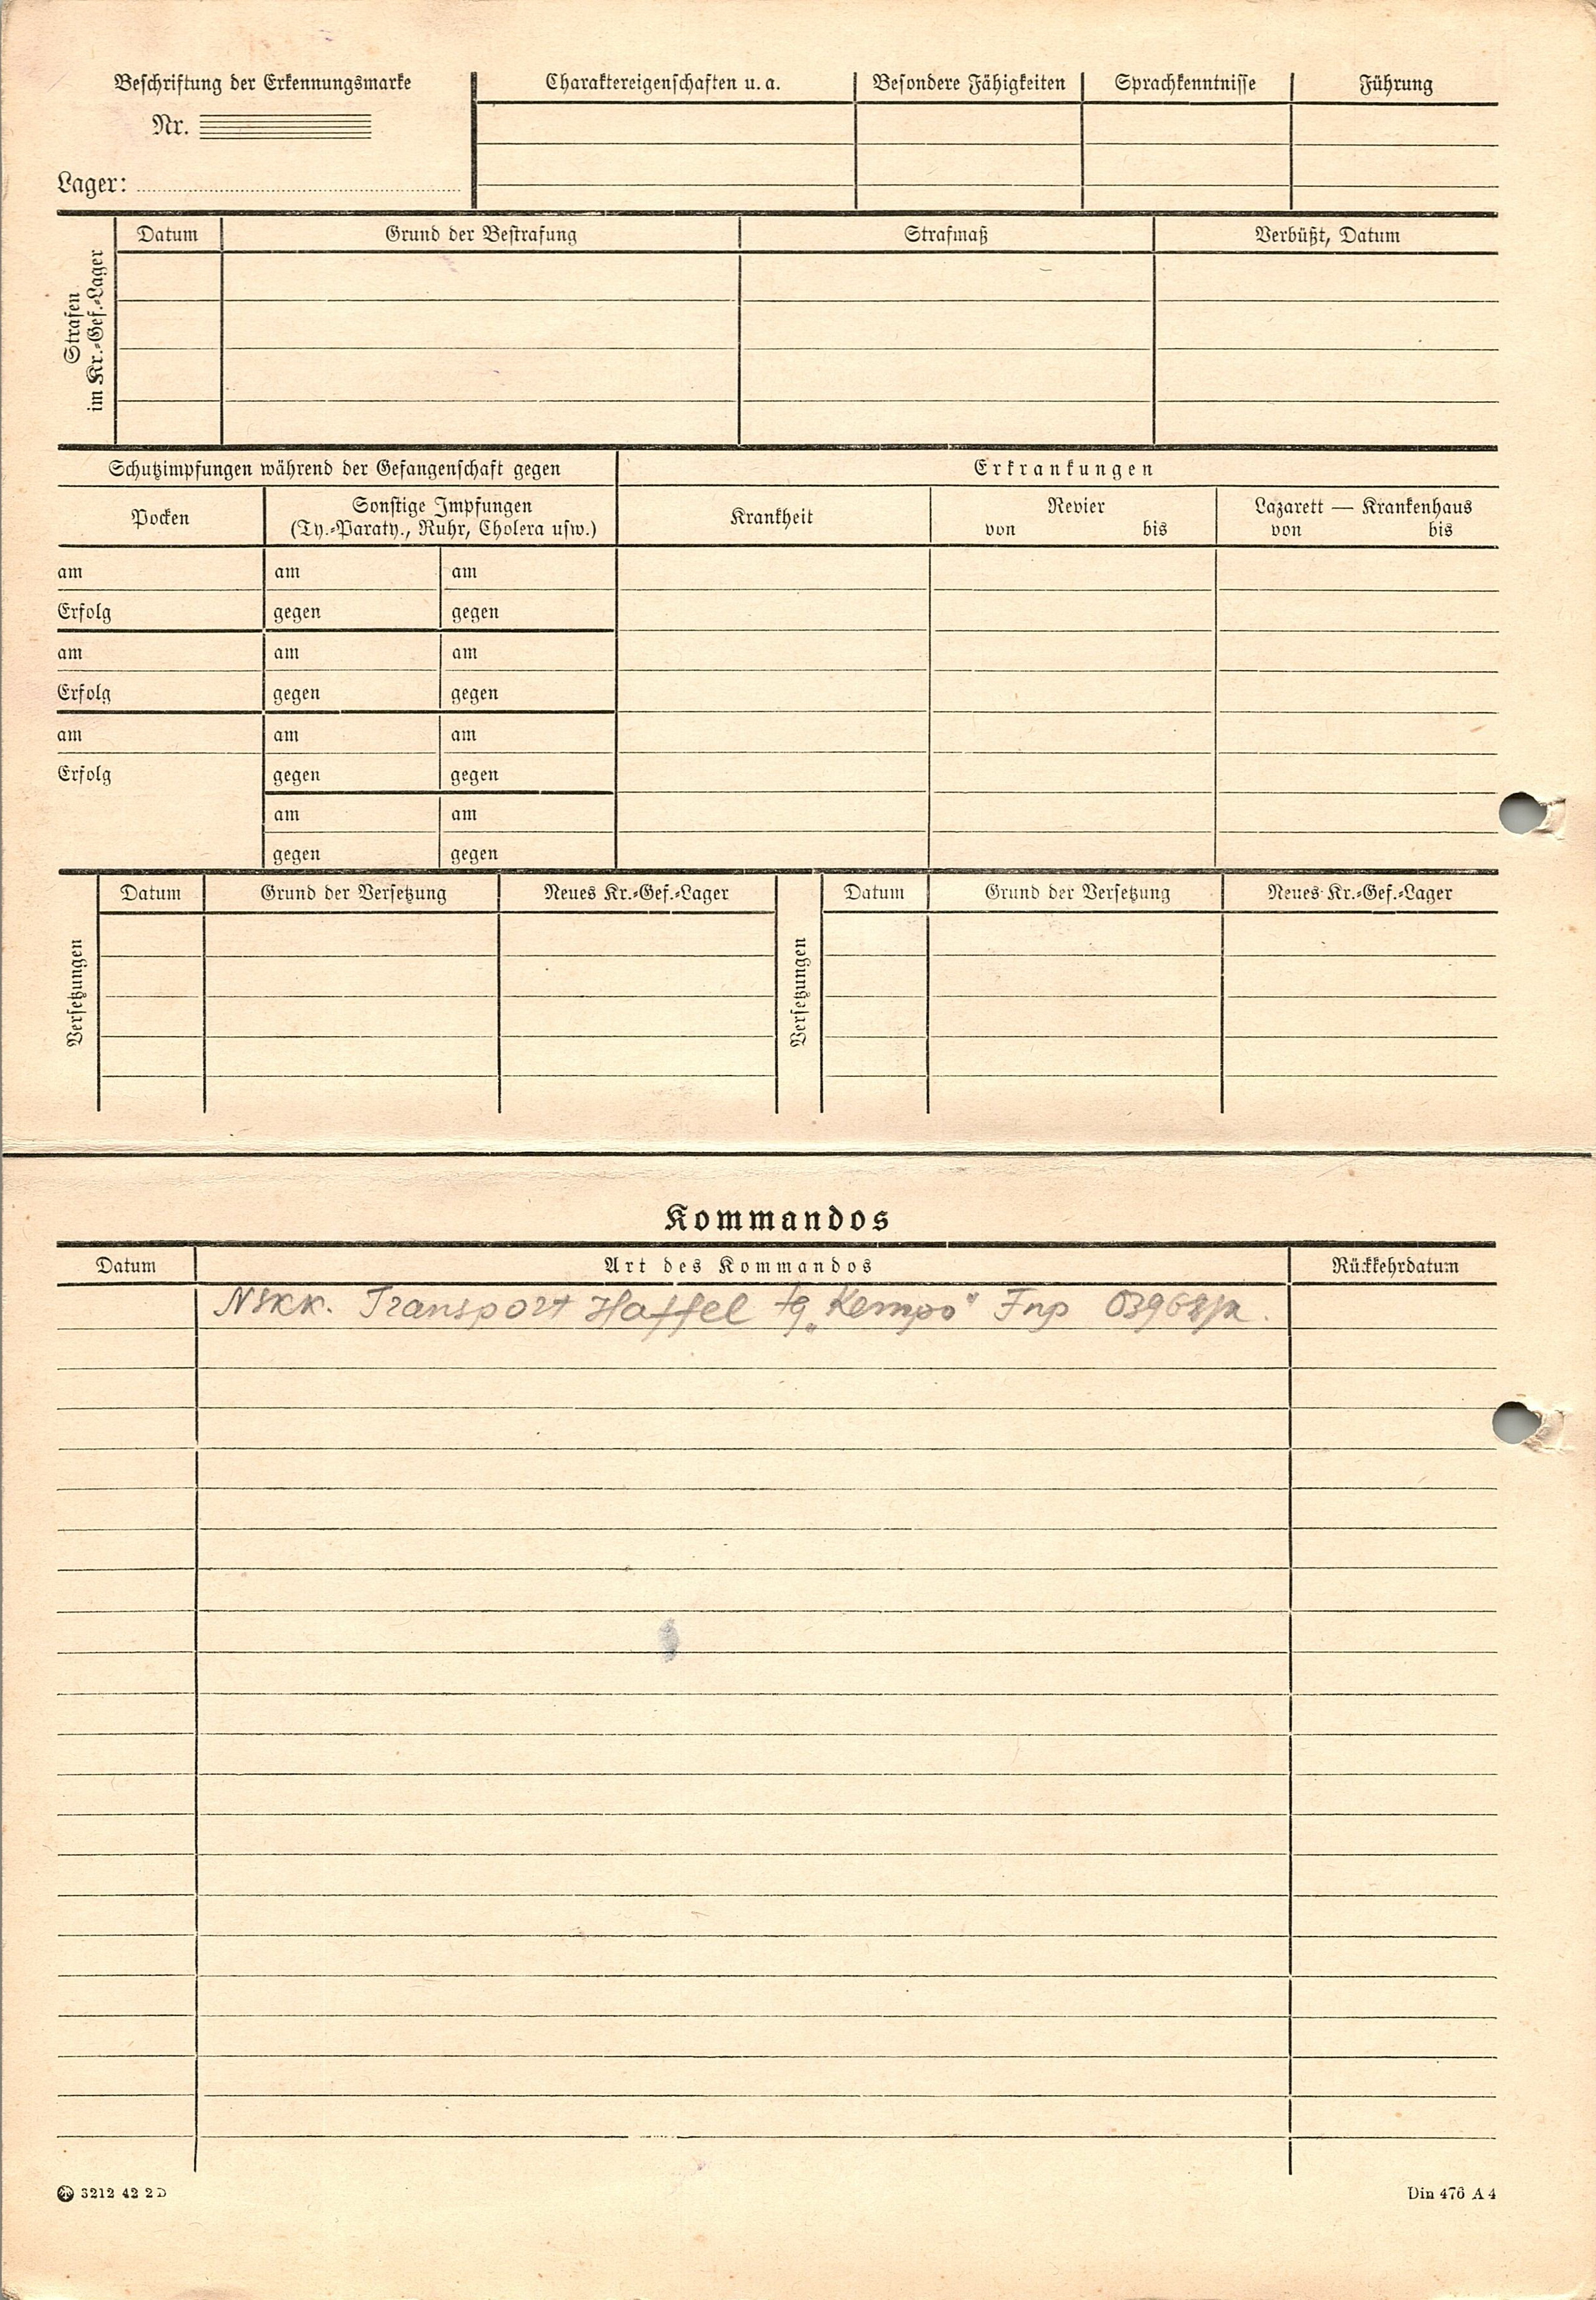 Beschriftung der Erkennungsmarke
Nr.
Lager:
Charaktereigenschaften u. a.
Besondere Fähigkeiten
Sprachkenntnisse
Führung
Strafen
im Kr.-Gef.-Lager
Datum
Grund der Bestrafung
Strafmaß
Verbüßt, Datum
Schutzimpfungen während der Gefangenschaft gegen
Erkrankungen
Pocken
Sonstige Impfungen
(Ty.-Paraty., Ruhr, Cholera usw.)
Krankheit
Revier
von bis
Lazarett — Krankenhaus
von bis
am am am
Erfolg gegen gegen
am am am
Erfolg gegen gegen
am am am
Erfolg gegen gegen
am am
gegen gegen
Versetzungen
Datum
Grund der Versetzung
Neues Kr.-Gef.-Lager
Versetzungen
Datum
Grund der Versetzung
Neues Kr.-Gef.-Lager
Kommandos
Datum
Art des Kommandos
Rückkehrdatum
NSKK. Transport Staffel „Kempo" Fnp
3212 42 2D
Din 476 A 4